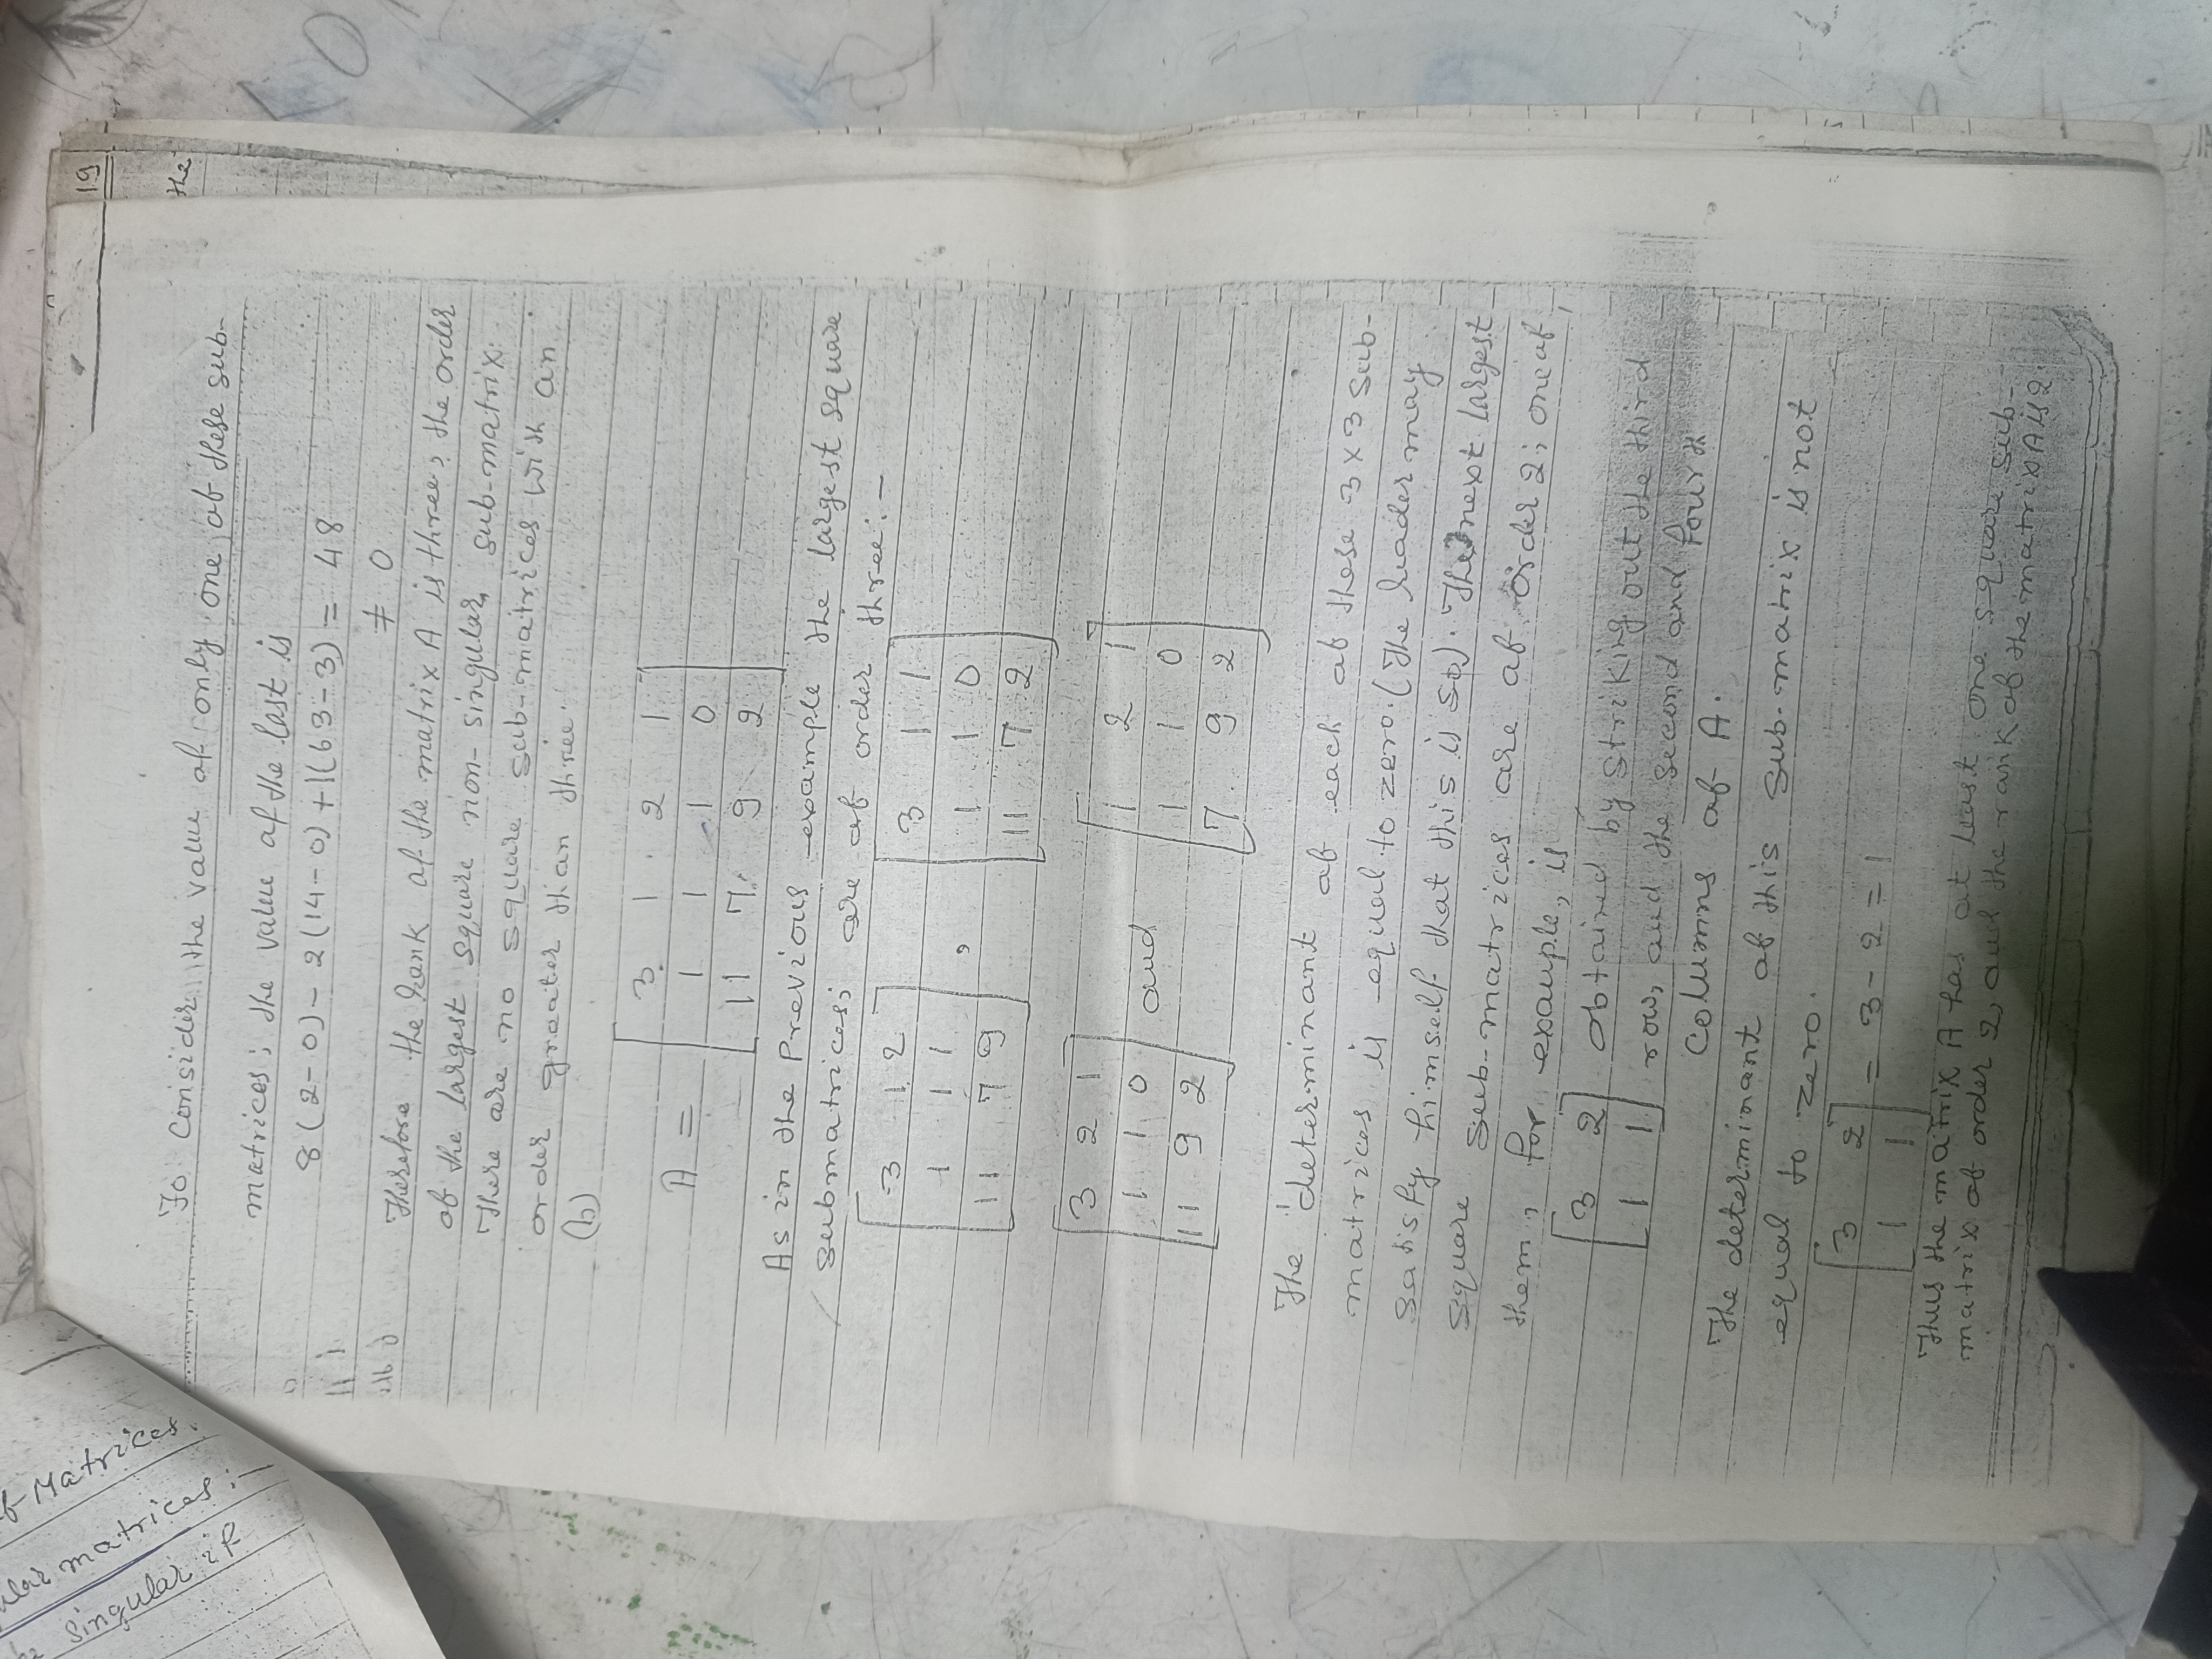 19
the
To Consider the value of only one of these sub-
matrices; the value of the last is
8(2-0)-2(14-0)+1(63-3) = 48
≠ 0
Therefore the Rank of the matrix A is three, the order
of the largest square non-singular sub-matrix.
There are no square sub-matrices with an
order greater than three.
(b)
3 1 2 1
A = 1 1 1 0
11 7 9 2
As in the Previous example the largest square
submatrices are of order three:-
3 1 2 3 1 1
1 1 1 , 1 1 0
11 7 9 11 7 2
3 2 1 1 2 1
1 1 0 and 1 1 0
11 9 2 7 9 2
The determinant of each of these 3×3 sub-
matrices is equal to zero. (The Reader may
satisfy himself that this is so). The next largest
square sub-matrices are of order 2; one of
them, for example, is
3 2 obtained by striking out the third
1 1 row, and the second and Fourth
Columns of A.
The determinant of this sub-matrix is not
equal to zero.
3 2
1 1 = 3 - 2 = 1
Thus the matrix A has at least one square sub-
matrix of order 2, and the rank of the matrix A is 2.
b-Matrices.
ular matrices:-
singular if